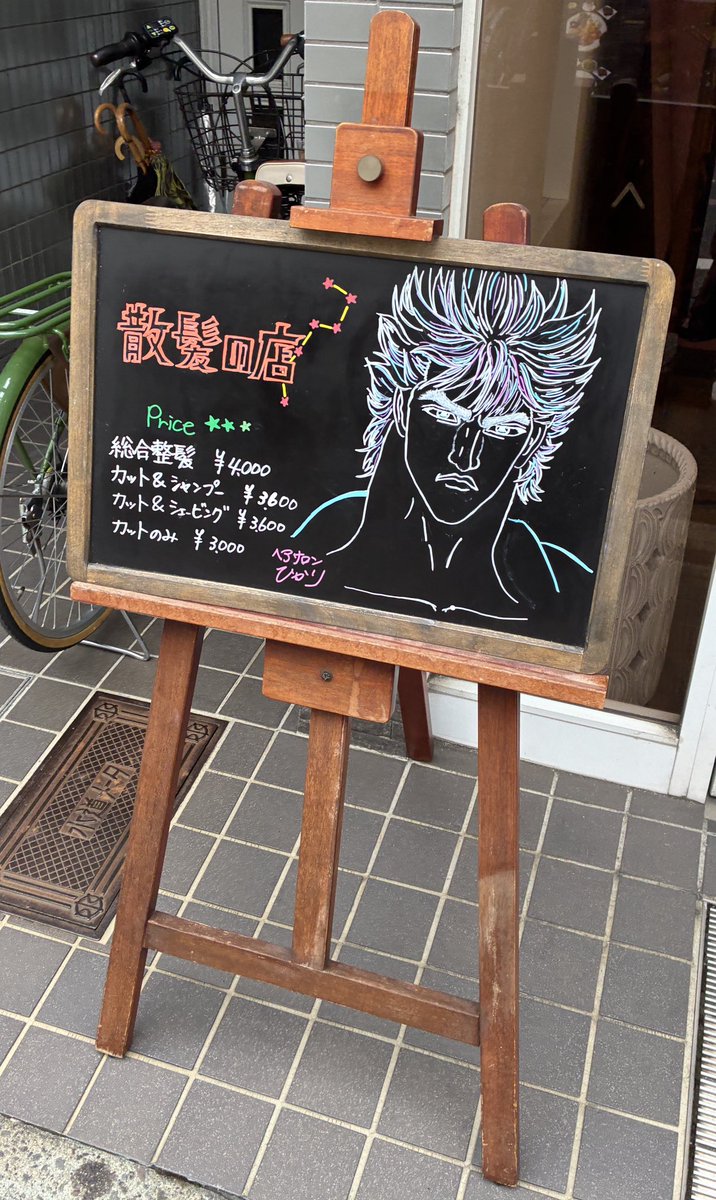 散髪の店
Price
総合整髪 ¥4,000
カット&シャンプー ¥3,600
カット&シェービング ¥3,600
カットのみ ¥3,000
ヘアサロン
ひかり